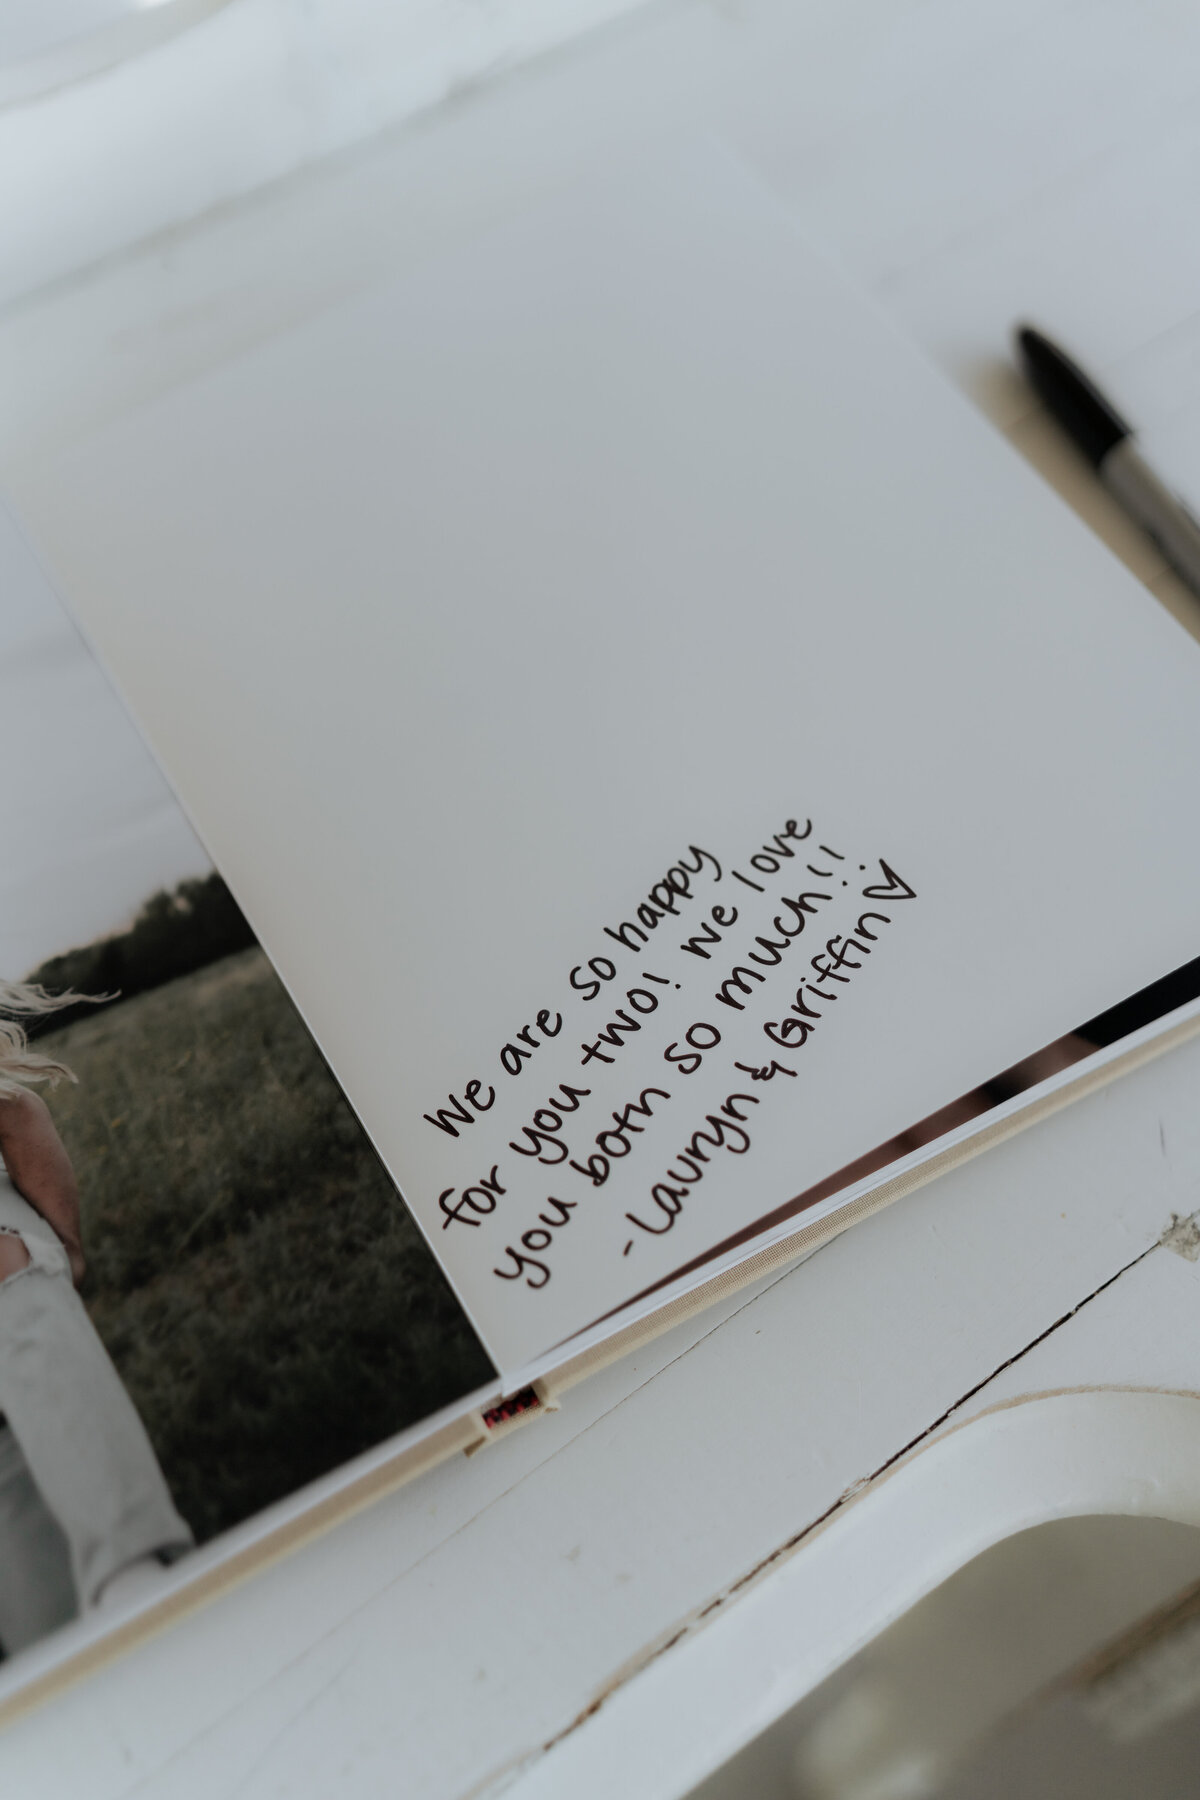 We are so happy
for you two! We love
you both so much!!
-Lauryn & Griffin ♡